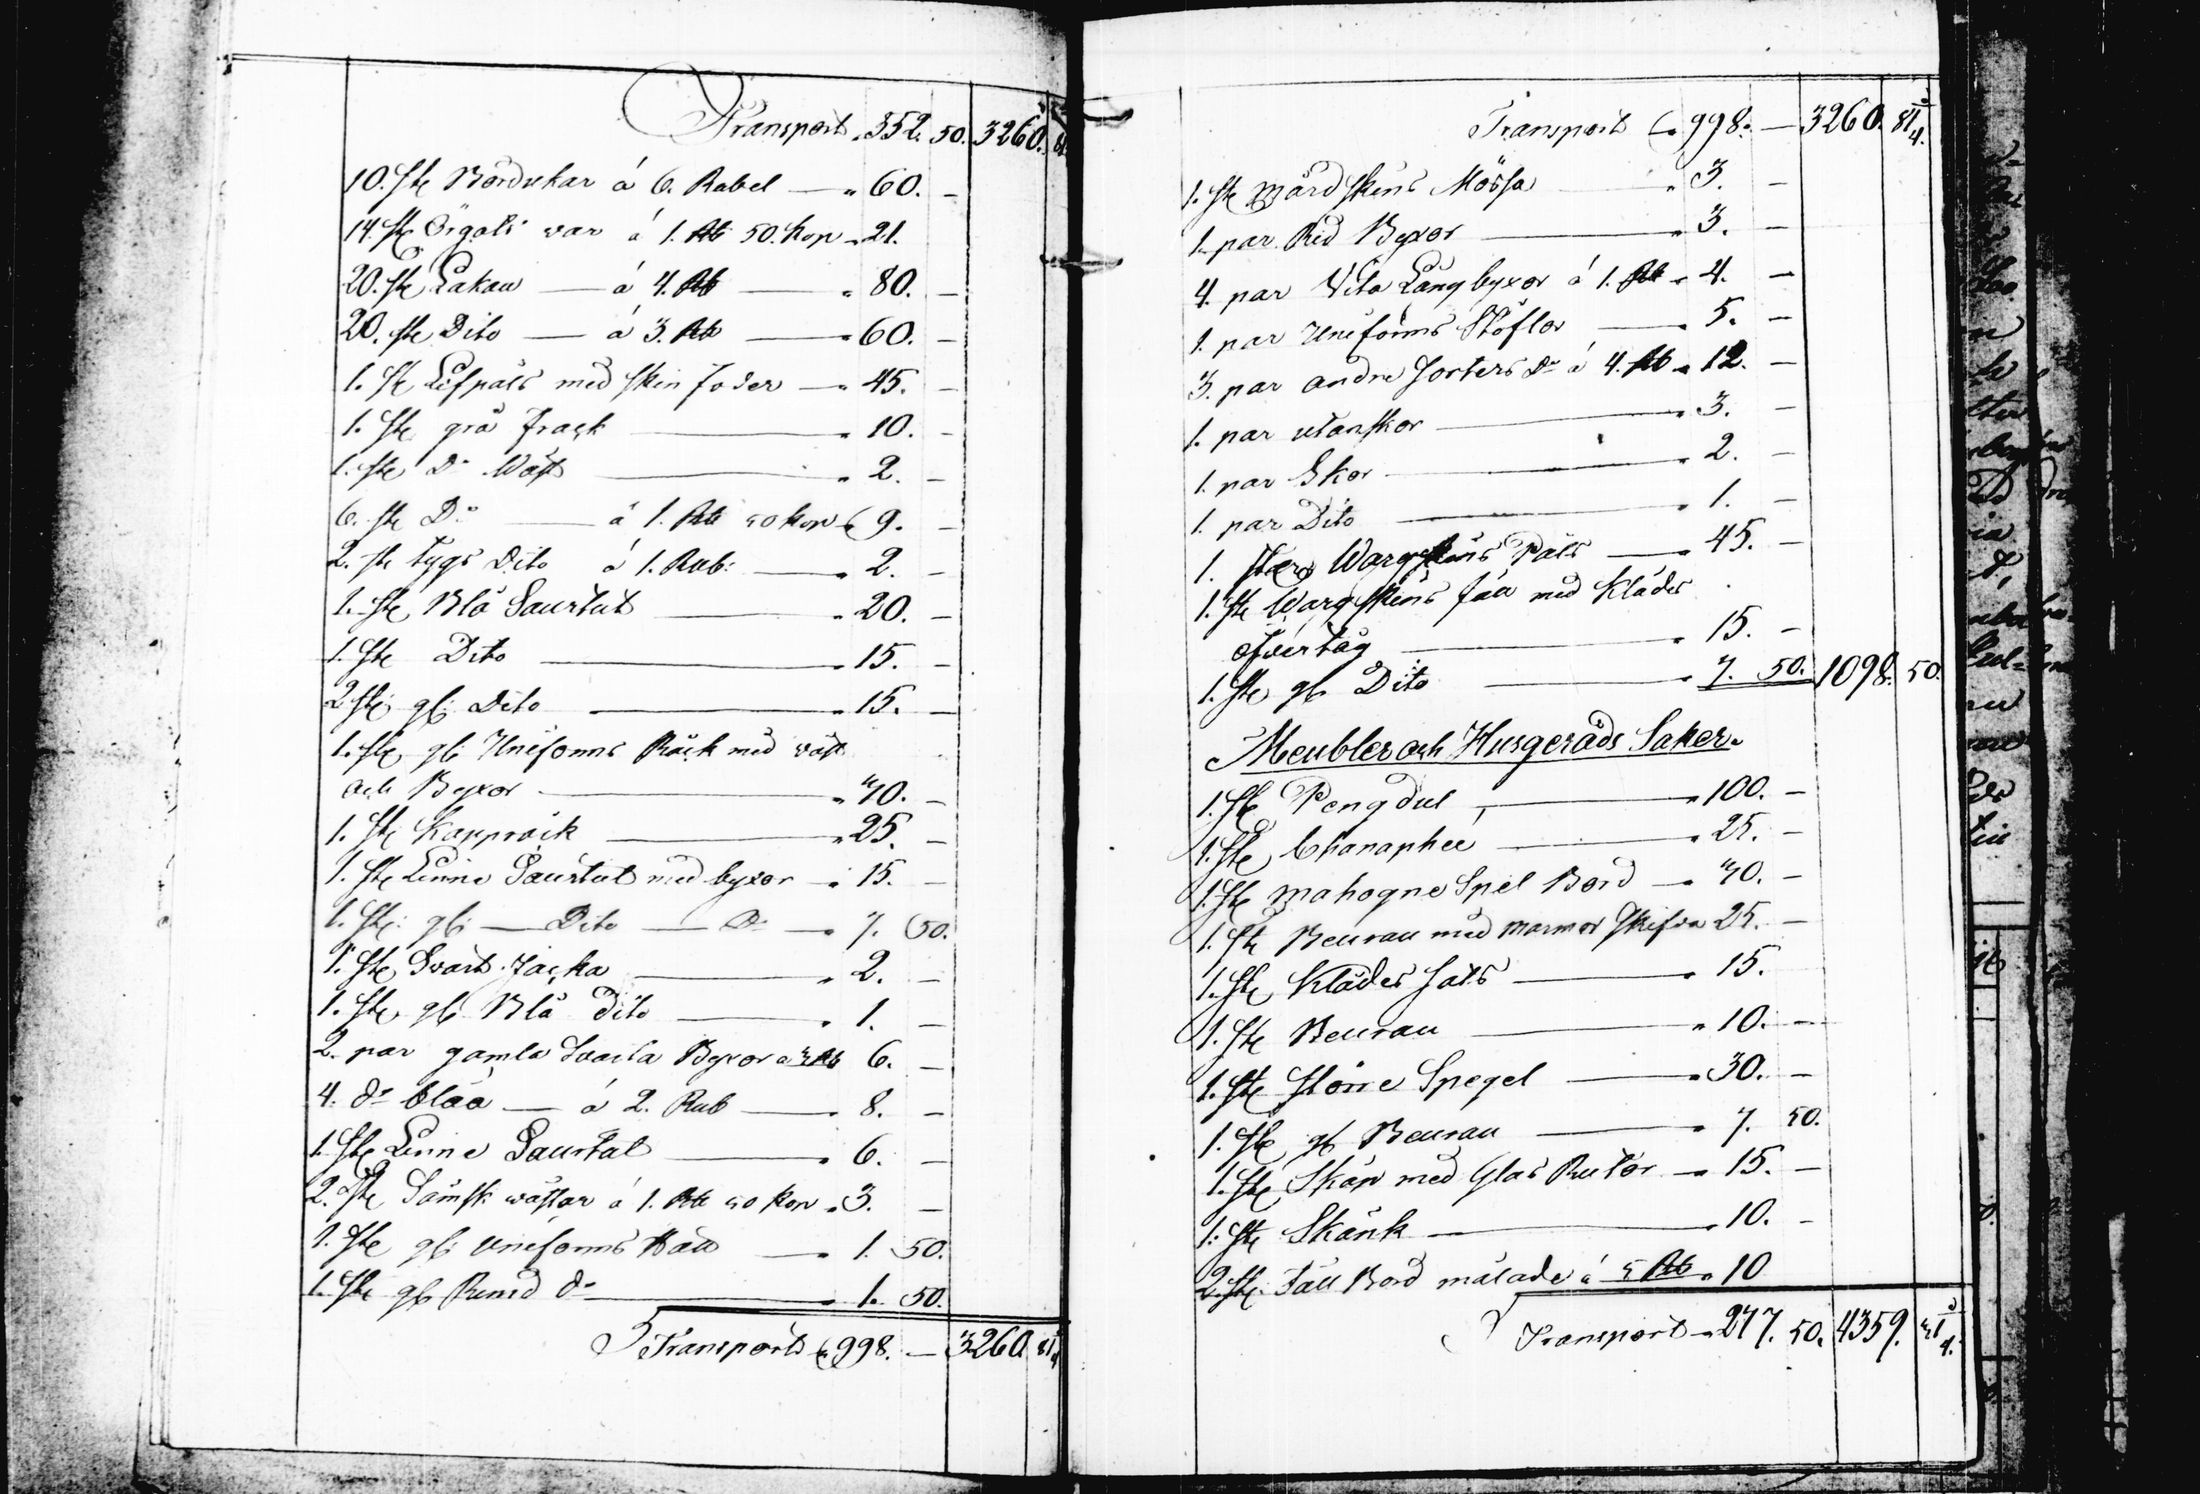 Transport „ 552. 50. 3260.
10. st: Borddukar á 6. Rubel — „ 60. —
14. st: Örgåts var á 1. Rb 50. Kop „ 21.
20. st: Lakan — á 4. Rb — „ 80. —
20. st: Dito — á 3. Rb — „ 60. —
1. st: Lifpäls med skin foder — „ 45. —
1. st: grå frack — „ 10. —
1. st: D:o Wäst — „ 2. —
6. st: D:o — á 1. Rb 50 kop „ 9. —
2. st: tygs Dito á 1. Rub: — „ 2. —
1. st: Blå Saurtut — „ 20. —
1. st: Dito — „ 15. —
2 st: gl: Dito — „ 15. —
1. st: gl: Uniforms Råck med väst
och Byxor — „ 40. —
1. st: Kappråck — „ 25. —
1. st: Linne Saurtut med byxor — „ 15. —
1. st: gl: — Dito — D:o — „ 7. 50.
1. st: Svart Jacka — „ 2. —
1. st: gl: Blå dito — „ 1. —
2. par gamla Svarta Byxor á 3 Rb 6. —
4. d:o blåa — á 2. Rub — „ 8. —
1. st: Linne Saurtut — „ 6. —
2. st: Sämsk wästar á 1. Rb 50 kop „ 3. —
1. st: gl: uniforms Hatt — „ 1. 50.
1. st: gl: Rund d:o — „ 1. 50.
Transport „ 998. — 3260. 81
Transport „ 998. — 3260. 81 3/4.
1. st: mårdskins Mössa „ 3. —
1. par Rid Byxor — „ 3. —
4. par Vita Långbyxor á 1. Rb „ 4. —
1. par Uniforms Stöflor — „ 5. —
3. par andra sorters d:o á 4. Rb „ 12. —
1. par utanskor — „ 3. —
1. par Skor — „ 2. —
1. par Dito — „ 1. —
1. Wargskins Päls — „ 45. —
1. st: Wargskins fäll med Klädes
öfvertåg — „ 15. —
1. st: gl: Dito — „ 7. 50. 1098. 50.
Meubler och Husgeråds Saker.
1. st: Pengdul — „ 100. —
1. st: Chanaphée — „ 25. —
1. st: mahogne Spel Bord — „ 40. —
1. st: Beurau med marmor skifva 25. —
1. st: Klädes såts — „ 15.
1. st: Beurau — „ 10. —
1. st: större Spegel — „ 30. —
1. st: gl: Beurau — „ 7. 50.
1. st: Skåp med Glas Rutor — „ 15. —
1. st: Skänk — „ 10. —
2. st: Fäll Bord målade á 5 Rb „ 10
Transport „ 277. 50. 4359. 31 3/4.